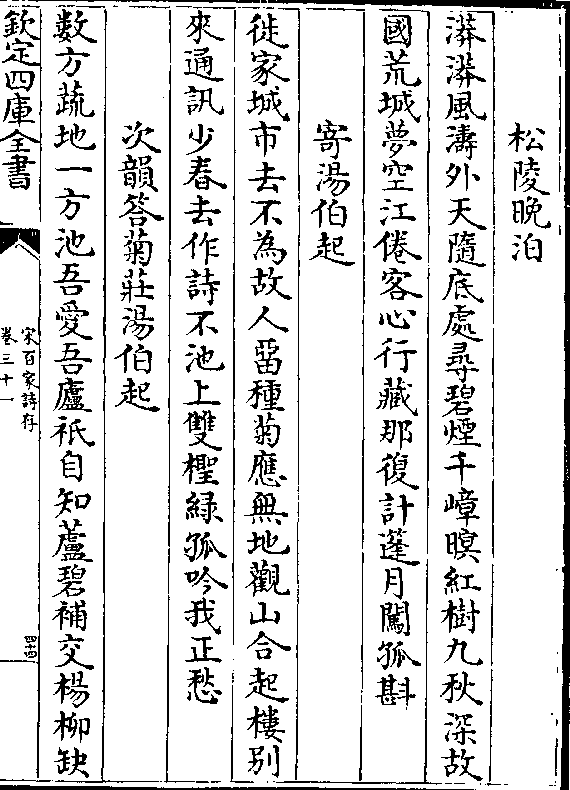 松陵晚泊
漭漭風濤外天隨底處尋碧煙千嶂暝紅樹九秋深故
國荒城夢空江倦客心行藏那復計蓬月闖孤斟
寄湯伯起
徙家城市去不為故人畱種菊應無地觀山合起樓别
來通訊少春去作詩不池上雙檉緑孤吟我正愁
次韻答菊莊湯伯起
數方蔬地一方池吾愛吾廬祇自知蘆碧補交楊柳缺
欽定四庫全書
宋百家詩存
卷三十一
四十四